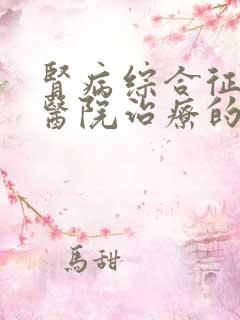 腎病綜合征
醫院治療的
馬甜